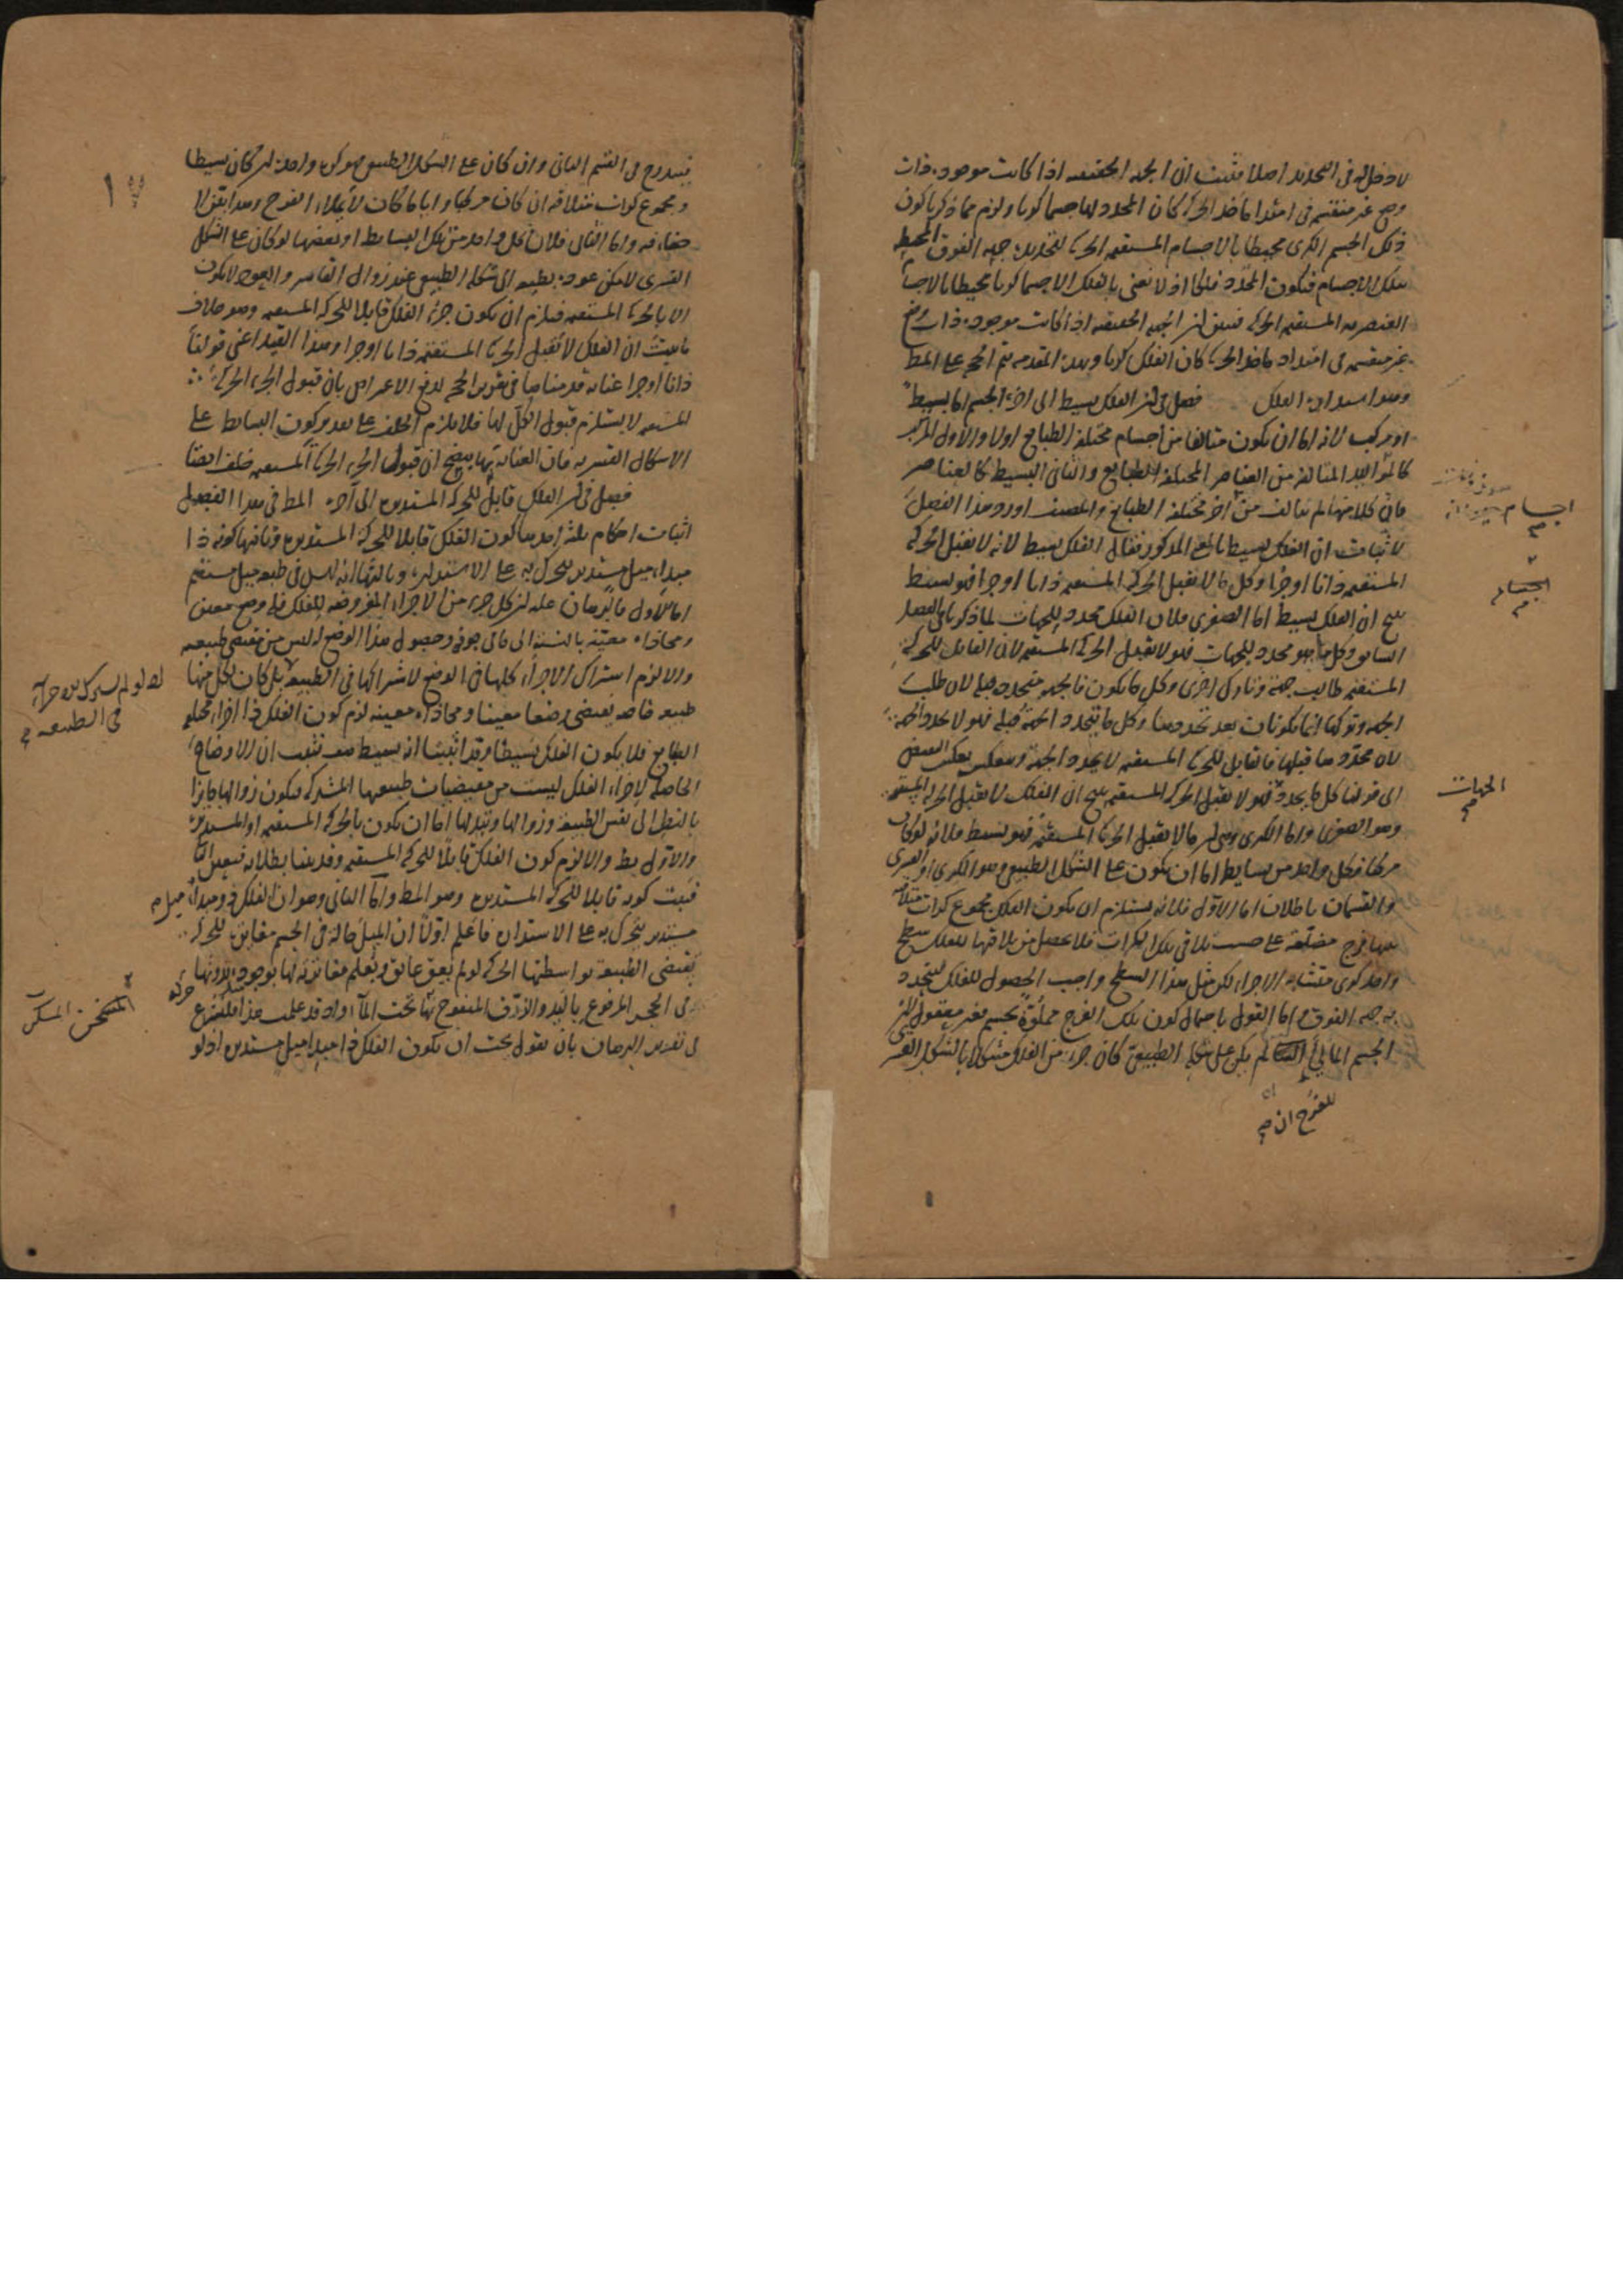 لا دخل له في التحديد اصلا فثبت ان الجهة الحقيقية اذا كانت موجودة ذات
وضع غير منقسمة في امتداد مأخذ الحركة كان المحدد لها جسما كريا ولزم مما ذكرنا كون
ذلك الجسم الكرى محيطا بالاجسام المستقيمة الحركة لتحديده جهة الفوق المحيطة
بتلك الاجسام فيكون المحدد فلكا اذ لا نعنى بالفلك الا جسما كريا محيطا بالاجسام
العنصرية المستقيمة الحركة فتبين ان الجهة الحقيقية اذا كانت موجودة ذات وضع
غير منقسمة في امتداد مأخذ الحركة كان الفلك كريا وبهذه المقدمة تتم الحجة على المط
وهو استدارة الفلك فصل في ان الفلك بسيط الى اخره الجسم اما بسيط
او مركب لانه اما ان يكون متالفا من اجسام مختلفة الطبايع اولا والاول المركب
كالمواليد المتالفة من العناصر المختلفة الطبايع والثانى البسيط كالعناصر
فان كلا منها لم يتالف من اخر مختلفة الطبايع والمصنف اورد هذا الفصل
لاثبات ان الفلك بسيط بالمعنى المذكور فقال الفلك بسيط لانه لا يقبل الحركة
المستقيمة ذاتا او جزءا وكل ما لا يقبل الحركة المستقيمة ذاتا او جزءا فهو بسيط
ينتج ان الفلك بسيط اما الصغرى فلان الفلك محدد للجهات لما ذكرنا في الفصل
السابق وكل ما هو محدد للجهات فهو لا يقبل الحركة المستقيمة لان القابل للحركة
المستقيمة طالب جهة وتارك اخرى وكل ما يكون فالجهة متحددة قبله لان طلب
الجهة وتركها انما يكونان بعد تحددها وكل ما يتحدد الجهة قبله فهو لا يحدد الجهة
لانه محدد بها قبلها فالقابل للحركة المستقيمة لا يحدد الجهة وينعكس بعكس النقيض
الى قولنا كل ما يحدد فهو لا يقبل الحركة المستقيمة ينتج ان الفلك لا يقبل الحركة المستقيمة
وهو الصغرى واما الكبرى وهى ان ما لا يقبل الحركة المستقيمة فهو بسيط فلانه لو كان
مركبا فكل واحد من بسايطه اما ان يكون على الشكل الطبيعى وهو الكرى او القسرى
والقسمان باطلان اما الاول فلانه يستلزم ان يكون الفلك مجموع كرات متلاقية
بينها فرج مضلعة على حسب تلاقى تلك الكرات فلا يحصل من تلاقيها للفلك سطح
واحد كرى متشابه الاجزاء لكن مثل هذا السطح واجب الحصول للفلك ليتحدد
به جهة الفوق اما القول باحتمال كون تلك الفرج مملوة بجسم فغير معقول لان
الجسم المالئ لم يكن على شكله الطبيعى كان جزء من الفلك مشكلا بالشكل القسرى
للفرج ان
اجسام
الجسم اما
الجهات
فيندرج في القسم الثانى وان كان على الشكل الطبيعى فهو كرة واحدة ان كان بسيطا
ومجموع كرات متلاقية ان كان مركبا وايا ما كان لا يملاء الفرج وهذا يقين لا
خفاء فيه واما الثانى فلان كل واحد من تلك البسايط او بعضها لو كان على الشكل
القسرى لامكن عوده بطبعه الى شكله الطبيعى عند زوال القاسر والعود لا يكون
الا بالحركة المستقيمة فيلزم ان يكون جزء الفلك قابلا للحركة المستقيمة وهو خلاف
ما ثبت ان الفلك لا يقبل الحركة المستقيمة ذاتا او جزءا وهذا القيد اعنى قولنا
ذاتا او جزءا عناية قدمناها في تقرير الحجة لدفع الاعتراض بان قبول الجزء الحركة
المستقيمة لا يستلزم قبول الكل لها فلا يلزم الخلف على تقدير كون البسايط على
الاشكال القسرية فان العناية بها يتضح ان قبول الجزء الحركة المستقيمة خلف ايضا
فصل في ان الفلك قابل للحركة المستديرة الى آخره المط في هذا الفصل
اثبات احكام ثلثة احدها كون الفلك قابلا للحركة المستديرة وثانيها كونه ذا
مبداء ميل مستدير يتحرك به على الاستدارة وثالثها انه ليس في طبعه ميل مستقيم
اما الاول فالبرهان عليه ان كل جزء من الاجزاء المفروضة للفلك فله وضع معين
ومحاذاة معينة بالنسبة الى ما في جوفه وحصول هذا الوضع له ليس من مقتضى طبيعته
والا لزم اشتراك الاجزاء كلها في الوضع لاشتراكها في الطبيعة بل كان لكل منها
طبيعة خاصة يقتضى وضعا معينا ومحاذاة معينة لزم كون الفلك ذا اجزاء مختلفة
الطبايع فلا يكون الفلك بسيطا وقد اثبتنا انه بسيط هف فثبت ان الاوضاع
الحاصلة لاجزاء الفلك ليست من مقتضيات طبيعتها المشتركة فيكون زوالها جايزا
بالنظر الى نفس الطبيعة وزوالها وتبدلها اما ان يكون بالحركة المستقيمة او المستديرة
والاول بط والا لزم كون الفلك قابلا للحركة المستقيمة وقد بينا بطلانه فتعين الثانى
فثبت كونه قابلا للحركة المستديرة وهو المط واما الثانى وهو ان الفلك ذو مبداء ميل
مستدير يتحرك به على الاستدارة فاعلم اولا ان الميل حالة في الجسم مغايرة للحركة
يقتضى الطبيعة بواسطتها الحركة لو لم يعق عايق ويعلم مغايرته لها بوجوده بدونها
في الحجر المرفوع باليد والزق المنفوخ تحت الماء واذ قد علمت هذا فلنشرع
في تقرير البرهان بان نقول يجب ان يكون الفلك ذا مبداء ميل مستدير اذ لو
١٧
في الطبيعة
المسكن